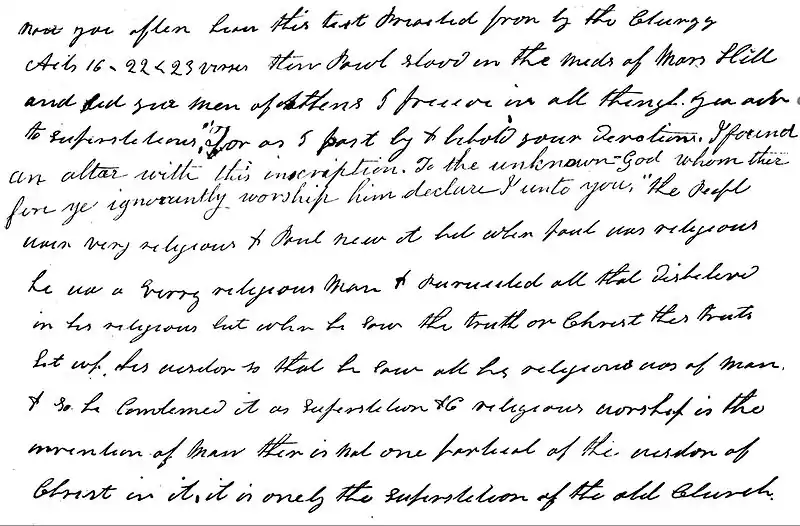 now you often hear this text Preached from by the Clergy
Acts 16 - 22 & 23 verses then Pawl stood in the meds of Mars Hill
and sed yee men of Athens I preceve in all things. you are
to superstetious, For as I past by & behold your Devotions. I found
an altar with this inscription. To the unknown God whom ther
fore ye ignorantly worship him declare I unto you," the Peopl
wair very religious & Paul new it but when paul was religious
he was a verry religious man & Purseceded all that Disbeleved
in his religious but when he saw the truth or Christ this truth
Set up his wisdom so that he saw all his religious was of man.
& so he Condemed it as superstetion & religious worship is the
invention of man ther is not one partical of the wisdom of
Christ in it, it is onely the superstetion of the old Church.